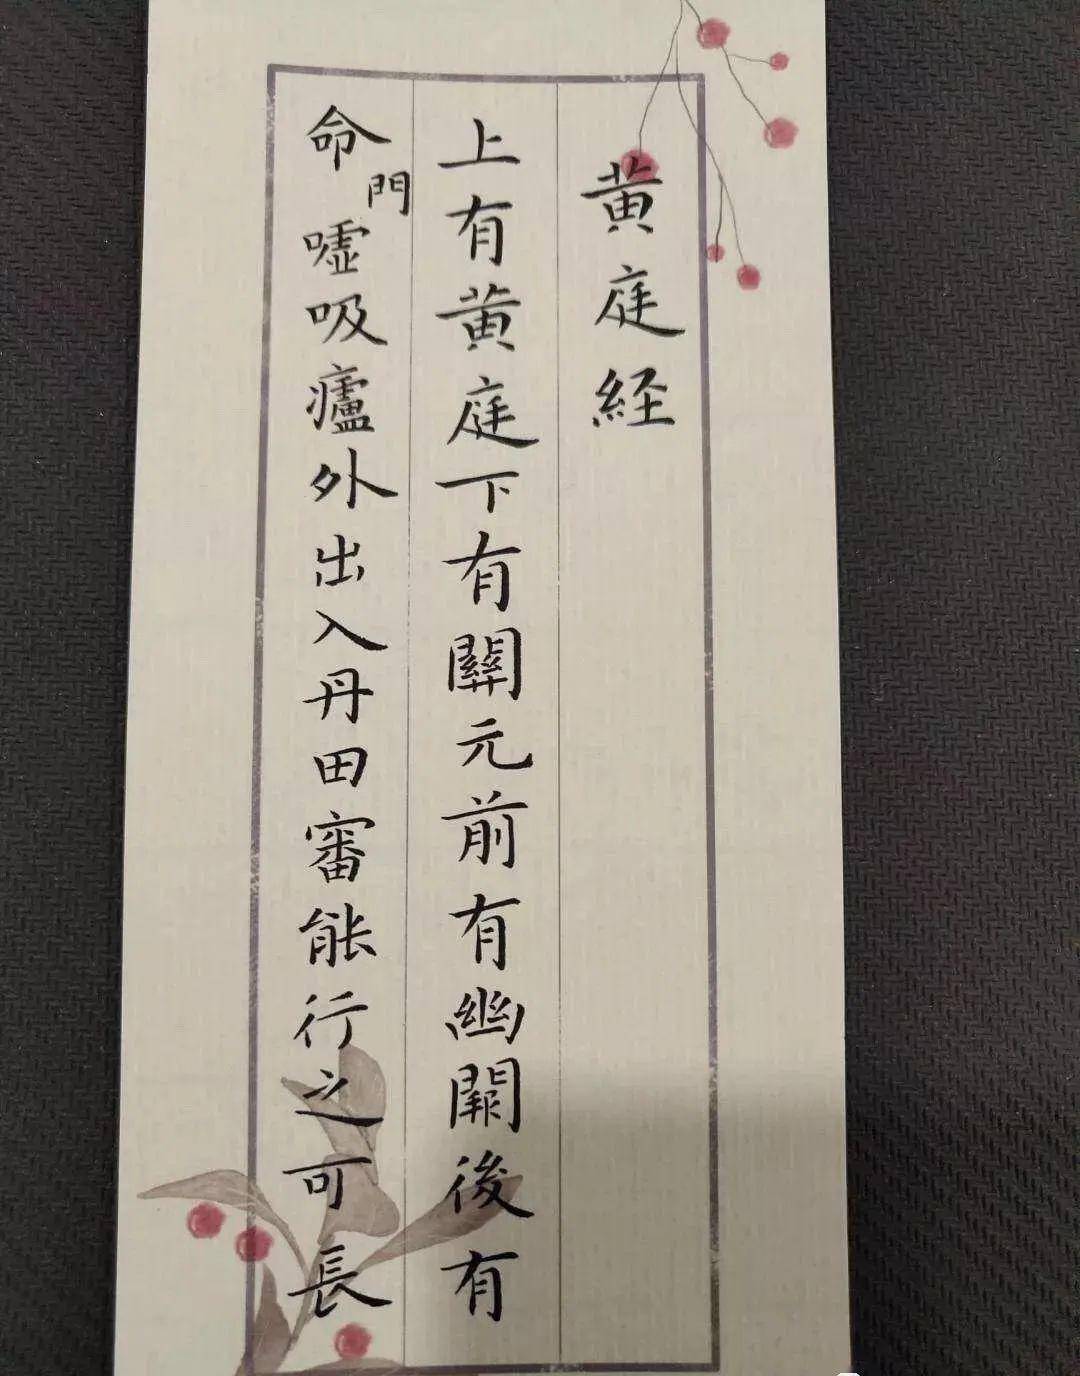 黄庭経
上有黄庭下有關元前有幽闕後有
命門噓吸廬外出入丹田審能行之可長